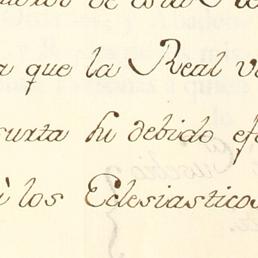 de esta Re
a que la Real v
surta su debido efe
à los Eclesiasticos